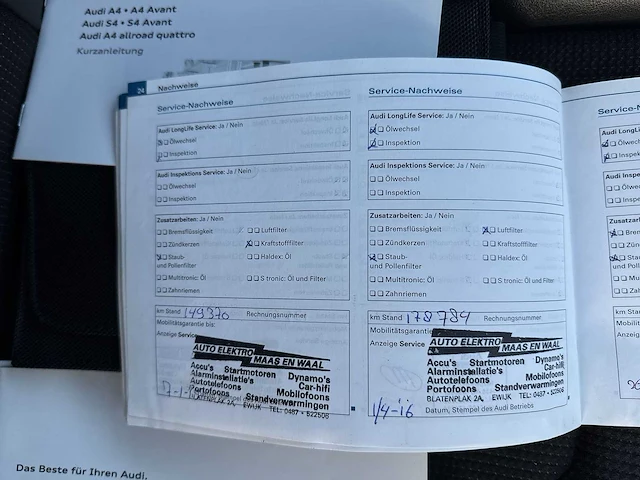 Audi A4 • A4 Avant
Audi S4 • S4 Avant
Audi A4 allroad quattro
Kurzanleitung
24 Nachweise
Service-Nachweise
Audi LongLife Service: Ja / Nein
Ölwechsel
Inspektion
Audi Inspektions Service: Ja / Nein
Ölwechsel
Inspektion
Zusatzarbeiten: Ja / Nein
Bremsflüssigkeit Luftfilter
Zündkerzen Kraftstofffilter
Staub- Haldex: Öl
und Pollenfilter
Multitronic: Öl S tronic: Öl und Filter
Zahnriemen
km Stand 149370 Rechnungsnummer
Mobilitätsgarantie bis:
Anzeige Service
AUTO ELEKTRO
MAAS EN WAAL
Accu's Startmotoren Dynamo's
Alarminstellatie's Car-hifi
Autotelefoons Mobilofoons
Portofoons Standverwarmingen
BLATENPLAK 2A, EWIJK TEL: 0487 • 522506
Service-Nachweise
Audi LongLife Service: Ja / Nein
Ölwechsel
Inspektion
Audi Inspektions Service: Ja / Nein
Ölwechsel
Inspektion
Zusatzarbeiten: Ja / Nein
Bremsflüssigkeit Luftfilter
Zündkerzen Kraftstofffilter
Staub- Haldex: Öl
und Pollenfilter
Multitronic: Öl S tronic: Öl und Filter
Zahnriemen
km Stand 178784 Rechnungsnummer
Mobilitätsgarantie
Anzeige Service
AUTO ELEKTRO
MAAS EN WAAL
Accu's Startmotoren Dynamo's
Alarminstellatie's Car-hifi
Autotelefoons Mobilofoons
Portofoons Standverwarmingen
BLATENPLAK 2A, EWIJK TEL: 0487 • 522506
1/4-16 Datum, Stempel des Audi Betriebs
Das Beste für Ihren Audi.